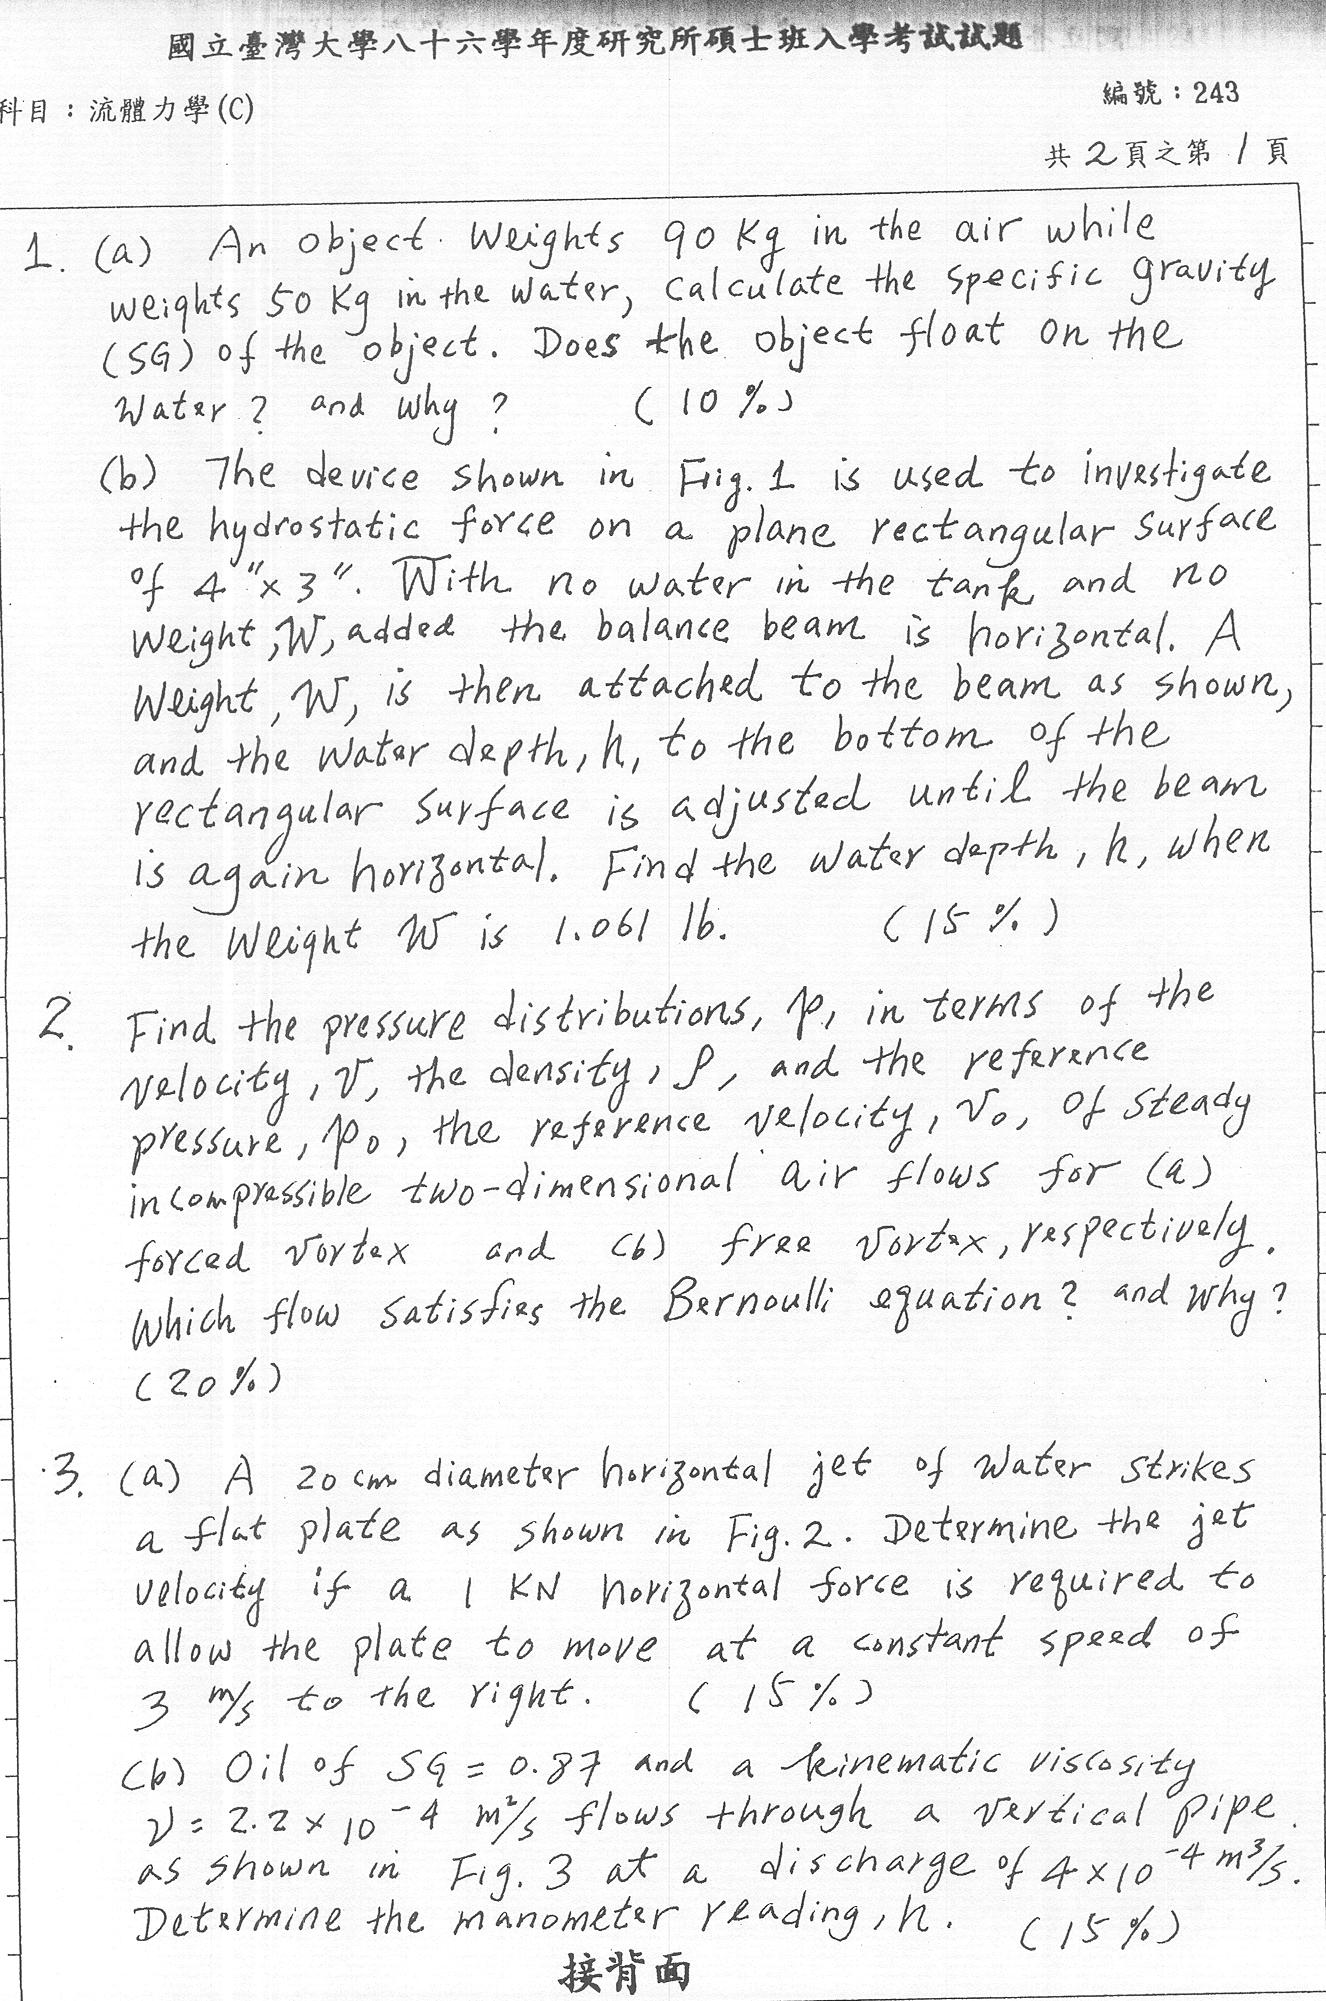 國立臺灣大學八十六學年度研究所碩士班入學考試試題
科目：流體力學(C)
編號：243
共2頁之第1頁
1. (a) An object weights 90 Kg in the air while
weights 50 Kg in the water, calculate the specific gravity
(SG) of the object. Does the object float on the
water? and why? (10%)
(b) The device shown in Fig. 1 is used to investigate
the hydrostatic force on a plane rectangular surface
of 4"x3". With no water in the tank and no
weight, W, added the balance beam is horizontal. A
weight, W, is then attached to the beam as shown,
and the water depth, h, to the bottom of the
rectangular surface is adjusted until the beam
is again horizontal. Find the water depth, h, when
the weight W is 1.061 lb. (15%)
2. Find the pressure distributions, p, in terms of the
velocity, v, the density, ρ, and the reference
pressure, p₀, the reference velocity, v₀, of steady
incompressible two-dimensional air flows for (a)
forced vortex and (b) free vortex, respectively.
Which flow satisfies the Bernoulli equation? and why?
(20%)
3. (a) A 20 cm diameter horizontal jet of water strikes
a flat plate as shown in Fig. 2. Determine the jet
velocity if a 1 KN horizontal force is required to
allow the plate to move at a constant speed of
3 m/s to the right. (15%)
(b) Oil of SG = 0.87 and a kinematic viscosity
ν = 2.2 × 10⁻⁴ m²/s flows through a vertical pipe
as shown in Fig. 3 at a discharge of 4×10⁻⁴ m³/s.
Determine the manometer reading, h. (15%)
接背面